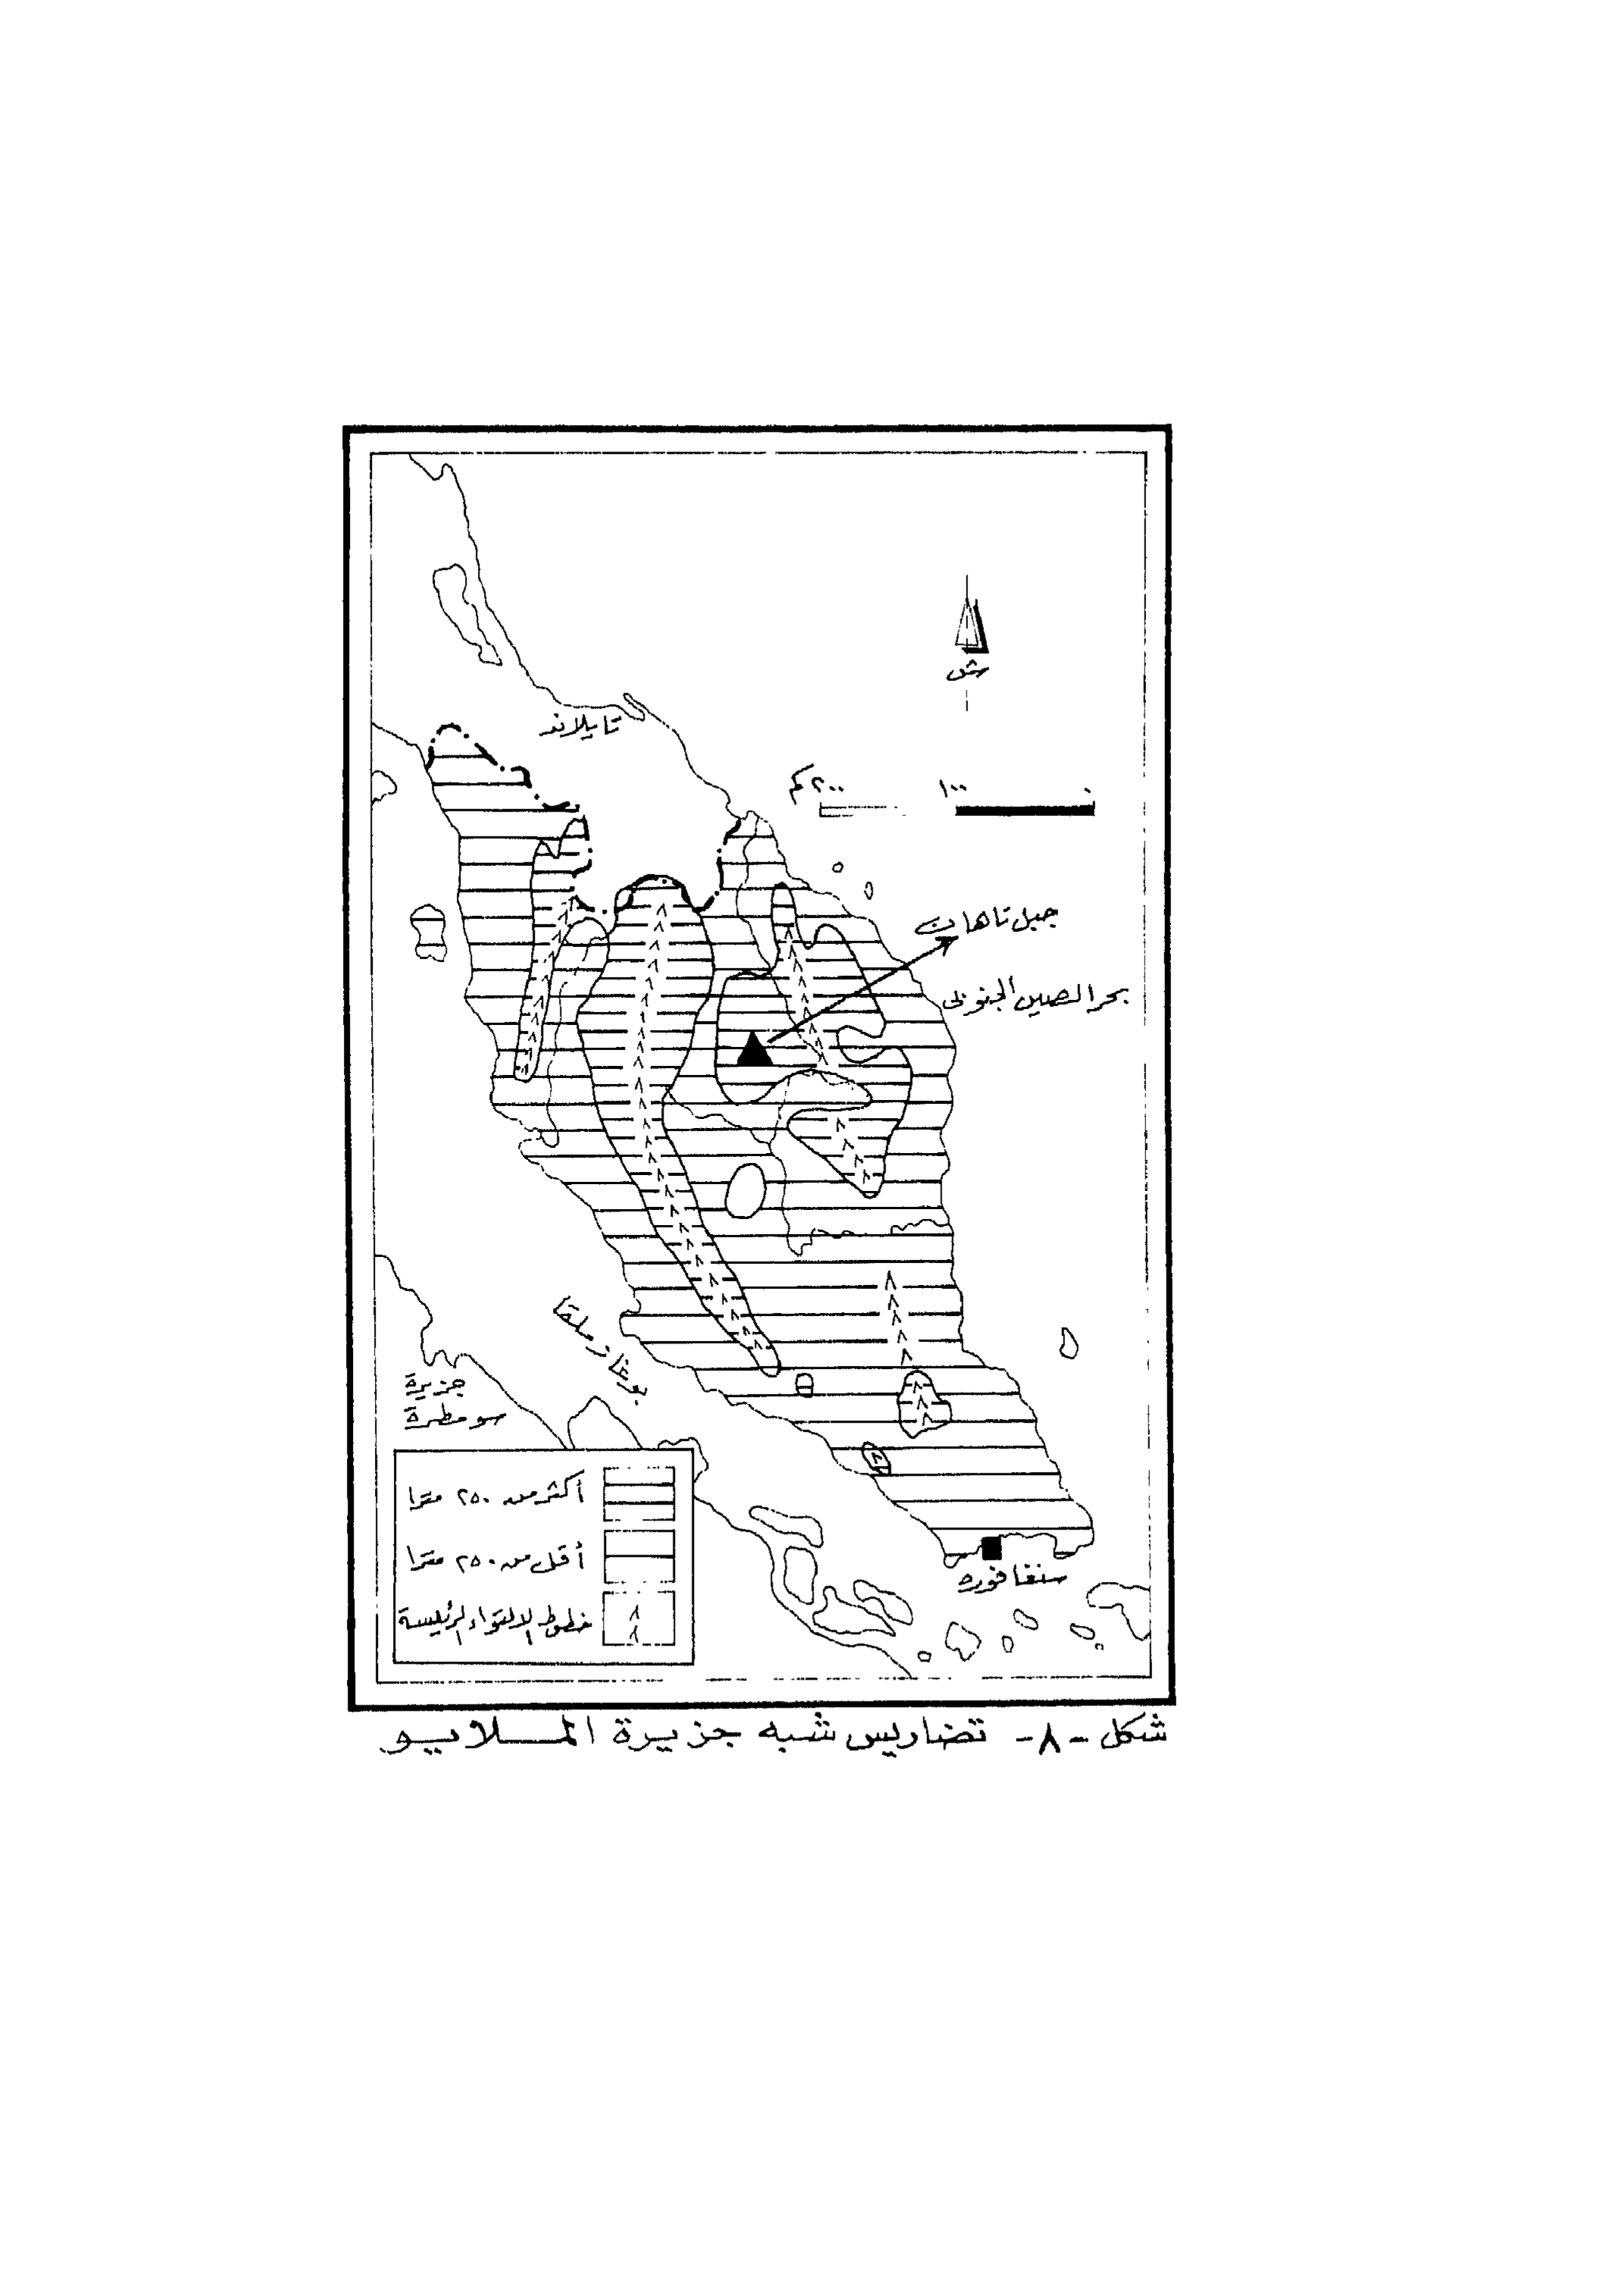 تايلاند
ش
٢٠٠ كم ١٠٠ ٠
جبل تاهان
بحر الصين الجنوبى
بوغاز ملقا
جزيرة
سومطرة
سنغافوره
أكثر من ٢٥٠ مترا
أقل من ٢٥٠ مترا
خطوط الالتواء الرئيسة
شكل -٨- تضاريس شبه جزيرة الملايو